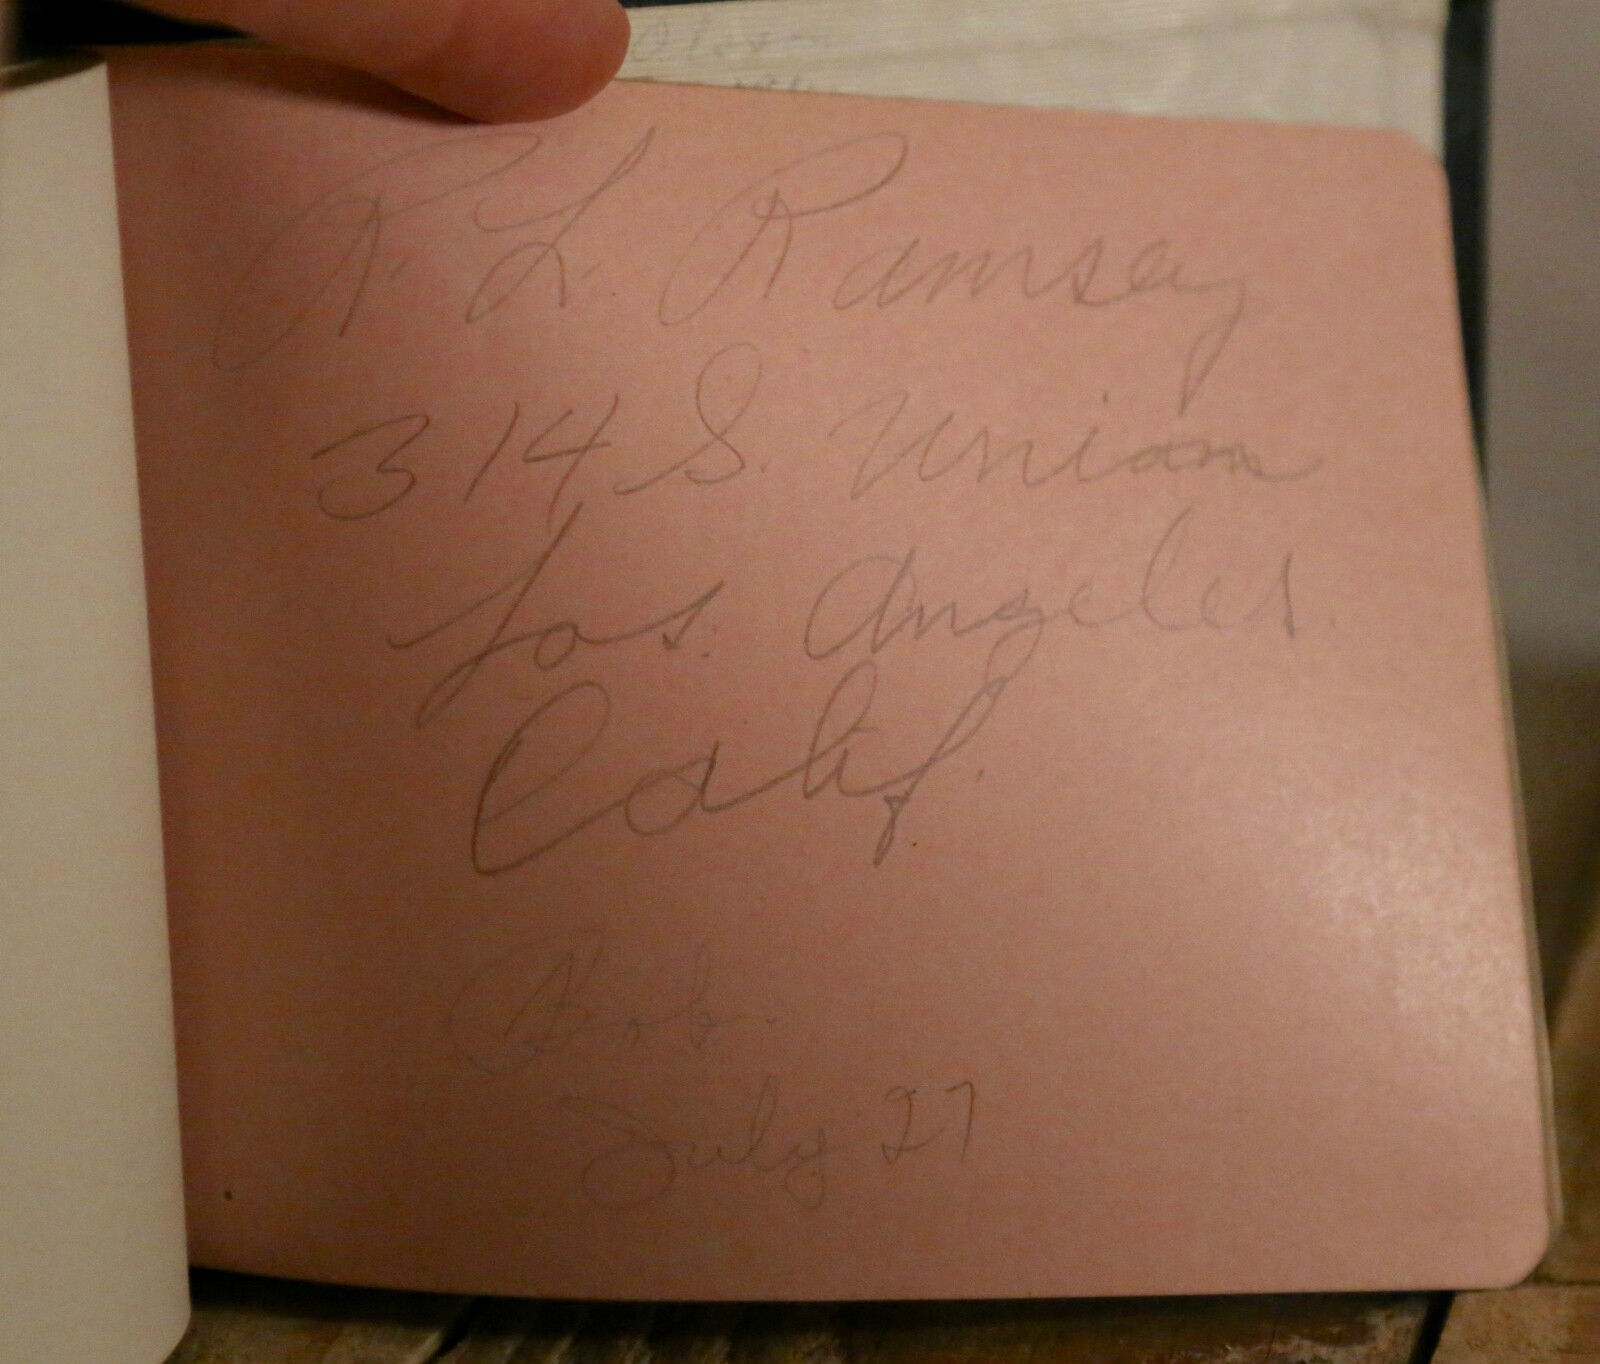 R. L. Ramsey
314 S. Union
Los. Angeles.
Calif.
Bob.
July 27